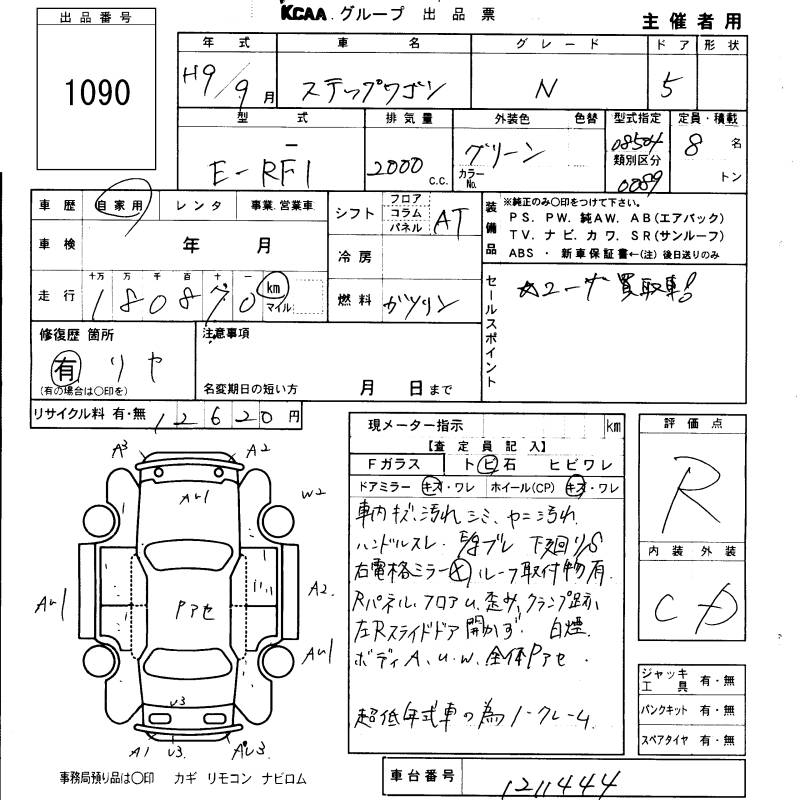 出品番号
1090
KCAA.グループ 出品票
主催者用
年式 車名 グレード ドア 形状
H9/9月 ステップワゴン N 5
型式 排気量 外装色 色替 型式指定 定員・積載
E-RF1 2000 c.c. グリーン カラーNo. 08504 類別区分 0089 8名 トン
車歴 自家用 レンタ 事業.営業車
シフト フロア コラム パネル AT
装備品
※純正のみ○印をつけて下さい。
PS. PW. 純AW. AB(エアバック)
TV. ナビ. カワ. SR(サンルーフ)
ABS ・ 新車保証書←(注)後日送りのみ
車検 年 月
冷房
走行 十万 万 千 百 十 一
180870 km マイル
燃料 ガソリン
セールスポイント
☆ユーザー買取車!
修復歴 箇所
有 リヤ
(有の場合は○印を)
注意事項
名変期日の短い方 月 日まで
リサイクル料 有・無 12620円
現メーター指示 km
【査定員記入】
Fガラス トビ石 ヒビワレ
ドアミラー キズ・ワレ ホイール(CP) キズ・ワレ
車内キズ、汚れ シミ、ヤニ汚れ
ハンドルスレ. 下廻りS
右電格ミラー× ルーフ取付物有
Rパネル、フロアU、歪み、クランプ跡
左Rスライドドア開かず. 白煙.
ボディA、U、W、全体Pアセ.
超低年式車の為ノークレーム.
評価点
R
内装 外装
C D
A3 A2
AU1
W2
A2.
AU1
Pアセ
AU1
U3
A1 U3 U3
ジャッキ工具 有・無
パンクキット 有・無
スペアタイヤ 有・無
事務局預り品は○印 カギ リモコン ナビロム
車台番号 1211444